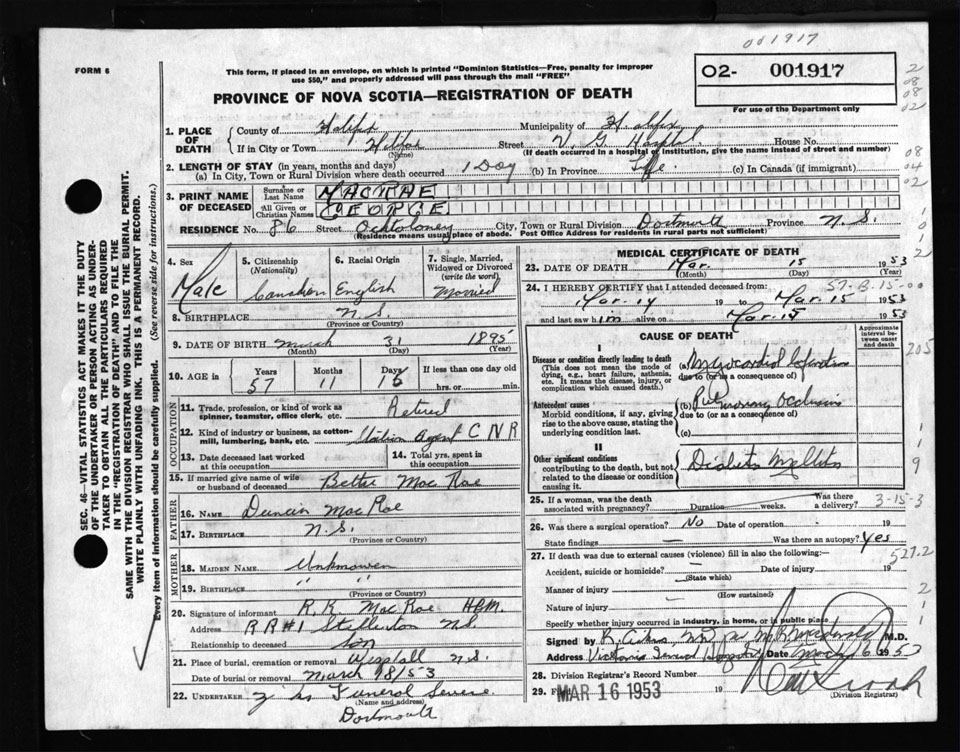 001917
FORM 6
This form, if placed in an envelope, on which is printed "Dominion Statistics—Free, penalty for improper
use $50," and properly addressed will pass through the mail "FREE"
O2- 001917
For use of the Department only
PROVINCE OF NOVA SCOTIA—REGISTRATION OF DEATH
SEC. 46—VITAL STATISTICS ACT MAKES IT THE DUTY
OF THE UNDERTAKER OR PERSON ACTING AS UNDER-
TAKER TO OBTAIN ALL THE PARTICULARS REQUIRED
IN THE "REGISTRATION OF DEATH" AND TO FILE THE
SAME WITH THE DIVISION REGISTRAR WHO SHALL ISSUE THE BURIAL PERMIT.
WRITE PLAINLY WITH UNFADING INK. THIS IS A PERMANENT RECORD.
Every item of information should be carefully supplied. (See reverse side for instructions.)
1. PLACE OF DEATH
County of Halifax Municipality of Halifax
If in City or Town Halifax Street V. G. Hospital House No.
(Name) (If death occurred in a hospital or institution, give the name instead of street and number)
2. LENGTH OF STAY (in years, months and days)
(a) In City, Town or Rural Division where death occurred 1 Day (b) In Province Life (c) In Canada (if immigrant)
3. PRINT NAME OF DECEASED
Surname or Last Name MACRAE
All Given or Christian Names GEORGE
RESIDENCE No. 86 Street Ochtoloney City, Town or Rural Division Dartmouth Province N.S.
(Residence means usual place of abode. Post Office Address for residents in rural parts not sufficient)
4. Sex Male
5. Citizenship (Nationality) Canadian
6. Racial Origin English
7. Single, Married, Widowed or Divorced (write the word) Married
8. BIRTHPLACE N.S.
(Province or Country)
9. DATE OF BIRTH March 31 1895
(Month) (Day) (Year)
10. AGE in Years 57 Months 11 Days 15 If less than one day old
hrs. or min.
OCCUPATION
11. Trade, profession, or kind of work as spinner, teamster, office clerk, etc. Retired
12. Kind of industry or business, as cotton-mill, lumbering, bank, etc. Station Agent C N R
13. Date deceased last worked at this occupation
14. Total yrs. spent in this occupation
15. If married give name of wife or husband of deceased Mac Rae
FATHER
16. NAME Duncan Mac Rae
17. BIRTHPLACE N.S.
(Province or Country)
MOTHER
18. MAIDEN NAME Unknowen
19. BIRTHPLACE " "
(Province or Country)
20. Signature of informant R. R. Mac Rae
Address R R #1 Stellerton N.S.
Relationship to deceased son
21. Place of burial, cremation or removal N.S.
Date of burial or removal March 18/53
22. UNDERTAKER Funeral Service
(Name and address)
Dartmouth
MEDICAL CERTIFICATE OF DEATH
23. DATE OF DEATH Mar. 15 1953
(Month) (Day) (Year)
24. I HEREBY CERTIFY that I attended deceased from:
Mar. 14 19 to Mar. 15 1953
and last saw him alive on Mar. 15 1953
CAUSE OF DEATH
Approximate interval between onset and death
I
Disease or condition directly leading to death
(This does not mean the mode of dying, e.g., heart failure, asthenia, etc. It means the disease, injury, or complication which caused death.)
(a) Myocardial Infarction
due to (or as a consequence of)
Antecedent causes
Morbid conditions, if any, giving rise to the above cause, stating the underlying condition last.
(b) Pulmonary Occlusion
due to (or as a consequence of)
(c)
II
Other significant conditions
contributing to the death, but not related to the disease or condition causing it.
Diabetes Mellitus
25. If a woman, was the death associated with pregnancy? Duration weeks. Was there a delivery? 3-15-3
26. Was there a surgical operation? No Date of operation 19
State findings — Was there an autopsy? Yes
27. If death was due to external causes (violence) fill in also the following: 527.2
Accident, suicide or homicide? — Date of injury 19
(State which)
Manner of injury
(How sustained)
Nature of injury
Specify whether injury occurred in industry, in home, or in public place
Signed by M.D.
Address Victoria General Hospital Date 1953
28. Division Registrar's Record Number
29. Filed MAR 16 1953 19
(Division Registrar)